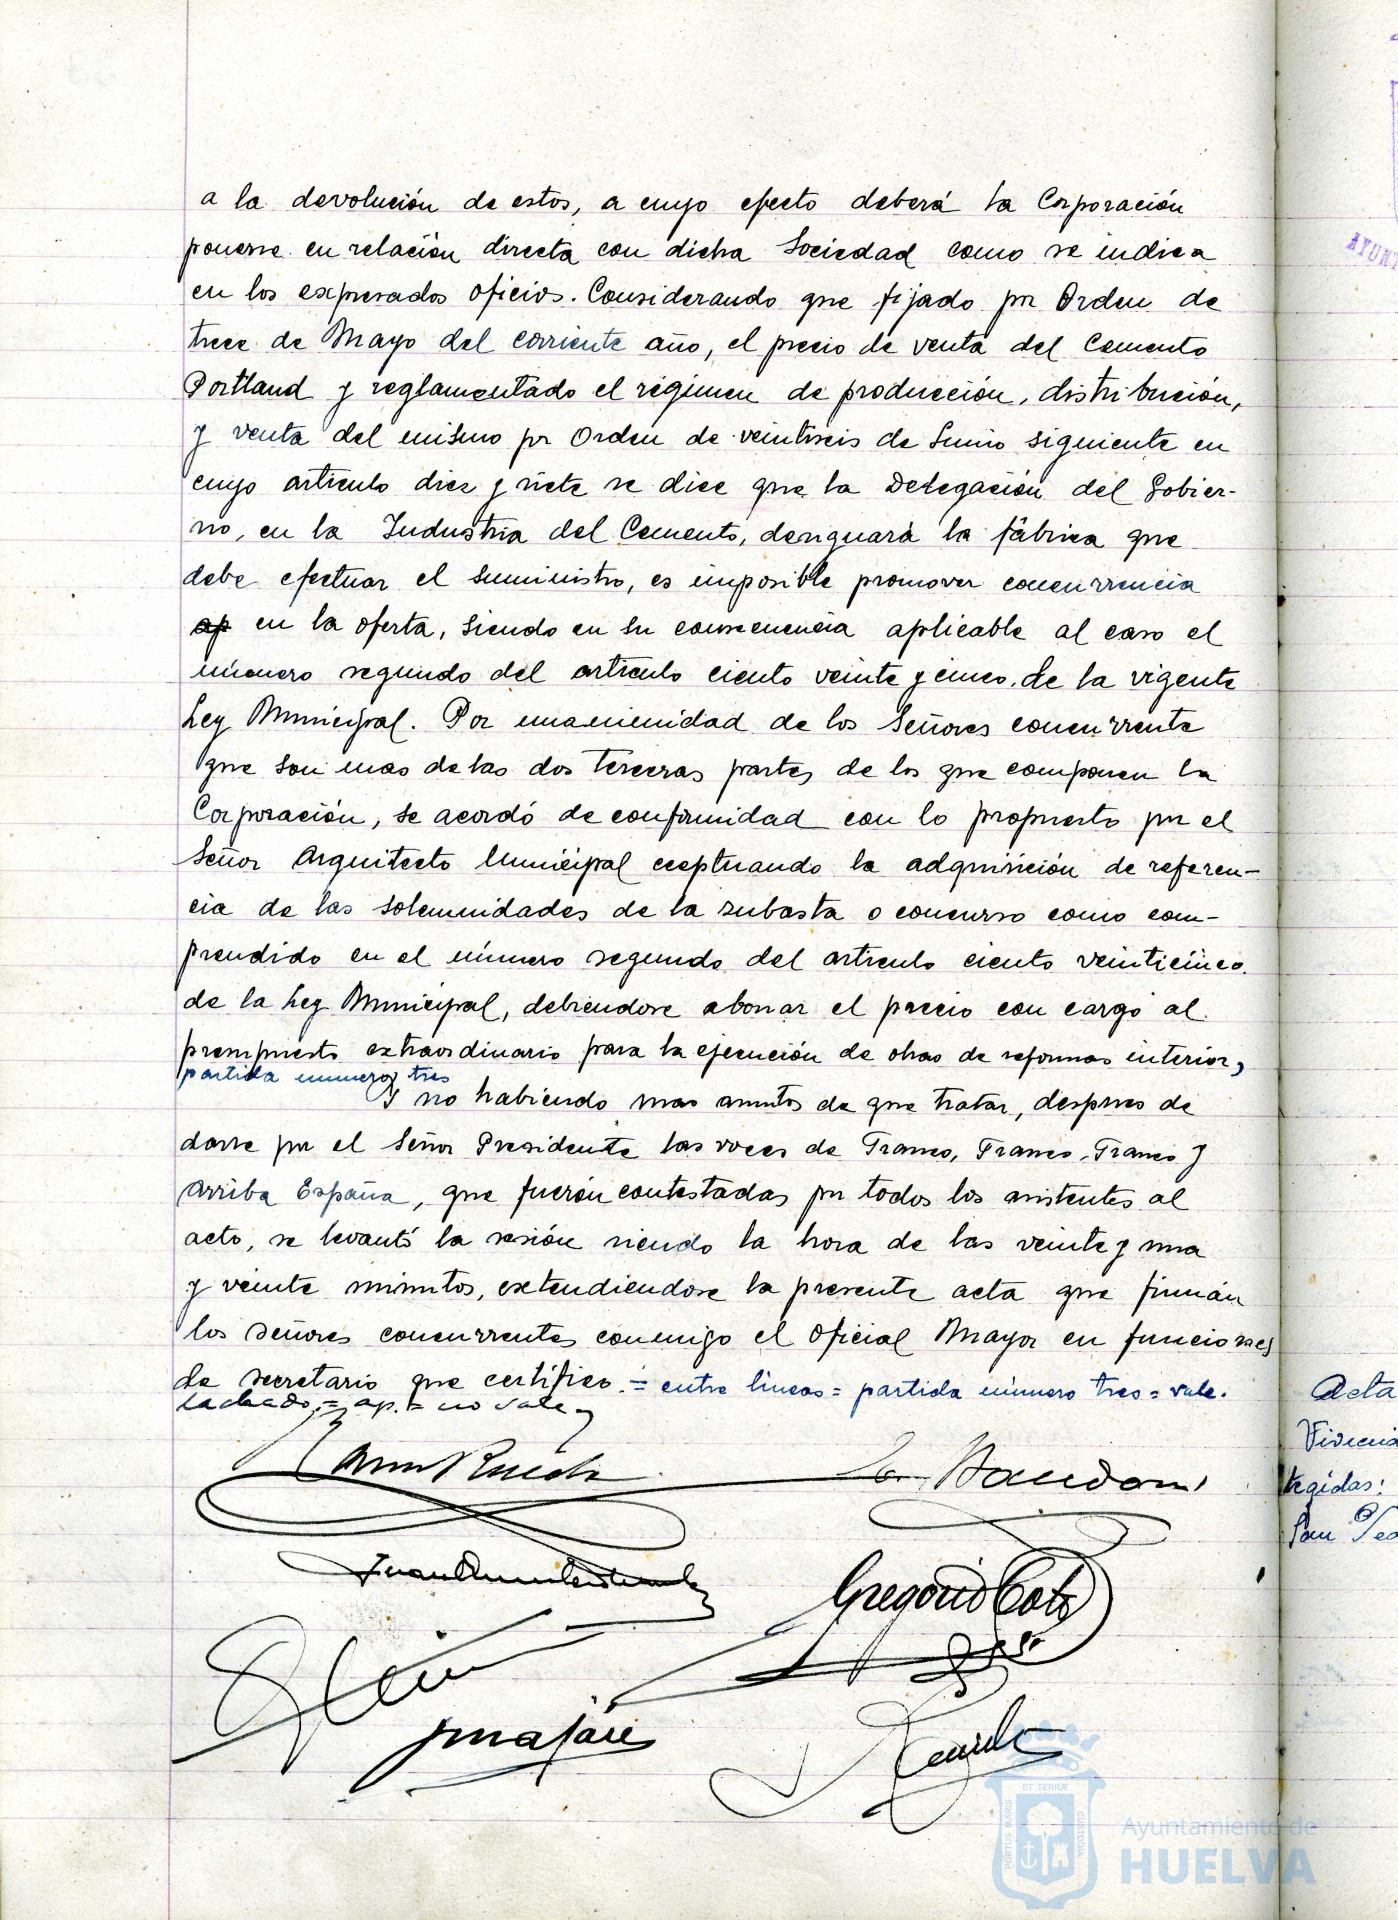 a la devolución de estos, a cuyo efecto deberá la Corporación
ponerse en relación directa con dicha Sociedad como se indica
en los expresados oficios. Considerando que fijado por Orden de
trece de Mayo del corriente año, el precio de venta del Cemento
Portland y reglamentado el régimen de producción, distribución,
y venta del mismo por Orden de veintiseis de Junio siguiente en
cuyo articulo diez y siete se dice que la Delegación del Gobier-
no, en la Industria del Cemento, designará la fábrica que
debe efectuar el suministro, es imposible promover concurrencia
ap en la oferta, siendo en su consecuencia aplicable al caso el
número segundo del artículo ciento veinte y cinco de la vigente
Ley Municipal. Por unanimidad de los Señores concurrente
que son mas de las dos terceras partes de los que componen la
Corporación, se acordó de conformidad con lo propuesto por el
Señor Arquitecto Municipal exeptuando la adquisición de referen-
cia de las solemnidades de la subasta o concurso como com-
prendido en el número segundo del articulo ciento veinticinco
de la Ley Municipal, debiendose abonar el precio con cargo al
presupuesto extraordinario para la ejecución de obras de reformas interior,
partida numero tres
Y no habiendo mas asuntos de que tratar, despues de
darse por el Señor Presidente las voces de Franco, Franco, Franco y
Arriba España, que fuerón contestadas por todos los asistentes al
acto, se levantó la sesión siendo la hora de las veinte y una
y veinte minutos, extendiendose la presente acta que firmán
los señores concurrentes conmigo el Oficial Mayor en funciones
de secretario que certifico.= entre lineas = partida número tres = vale.
tachado = ap. = no vale
Gregorio Coto
Acta
Viviend
tegidas:
San Pe
AYUNT
PORTUS MARIS ET TERRÆ CUSTODIA
Ayuntamiento de
HUELVA